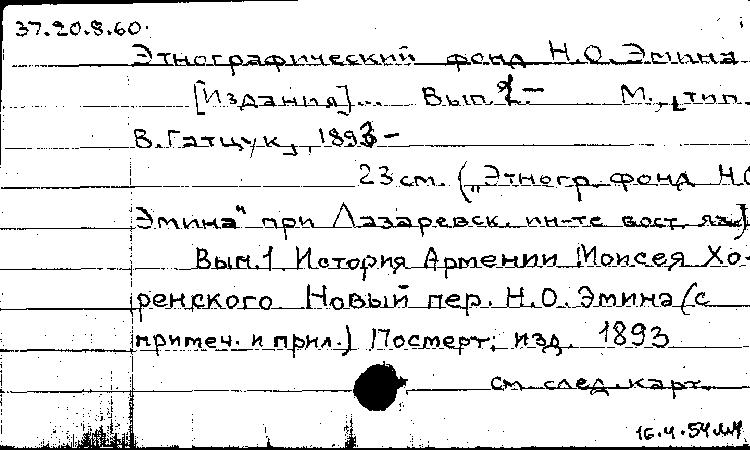 37.20.8.60.
Этнографический фонд Н.О. Эмина
[Издания]... Вып. 1- М., тип.
В. Гатцук, 1893-
23 см. („Этногр. фонд Н.О
Эмина" при Лазаревск. ин-те вост. яз.)
Вып. 1. История Армении Моисея Хо-
ренского Новый пер. Н.О. Эмина (с
примеч. и прил.) Посмерт. изд. 1893
см. след. карт.